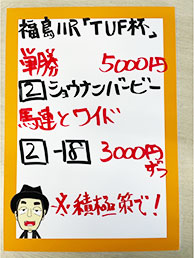 福島11R「TUF杯」
単勝 5000円
2 ショウナンバービー
馬連とワイド
2-8 3000円
ずつ
☆積極策で!